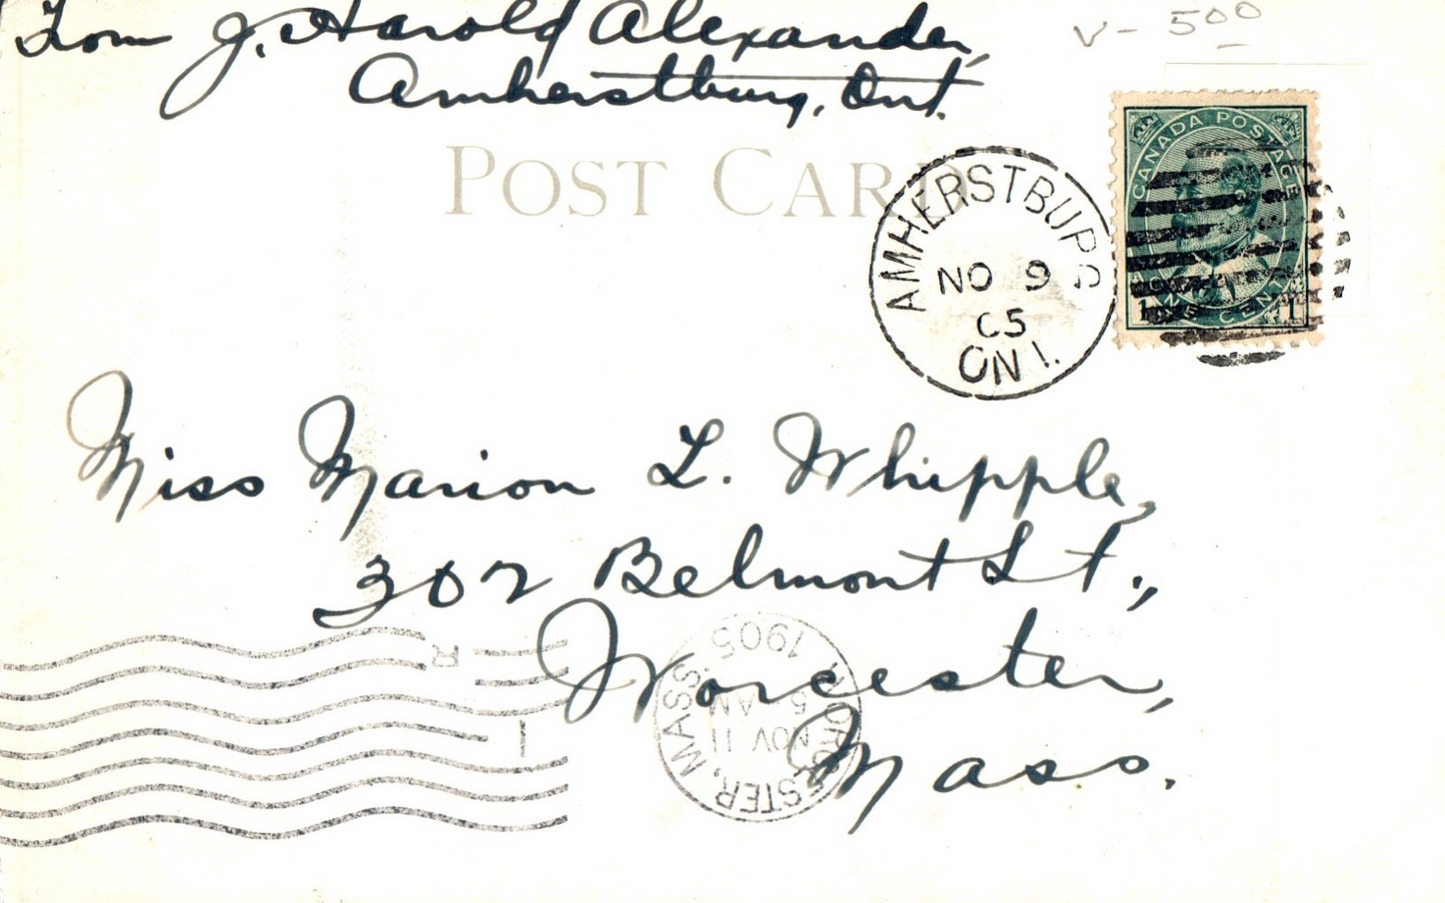 From J. Harold Alexander,
Amherstburg, Ont.
V- 500
POST CARD
CANADA POSTAGE
ONE CENT
1 1
AMHERSTBURG
NO 9
05
ONT.
Miss Marion L. Whipple,
302 Belmont St.,
Worcester,
Mass.
WORCESTER, MASS.
NOV 11
5 AM
1905
R
1